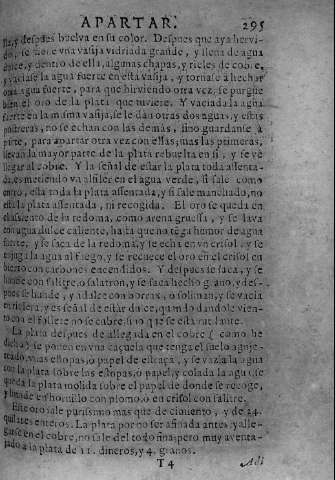 APARTAR. 295
y despues buelva en su color. Despues que aya hervi-
do, se tiene vna vasija vidriada grande, y llena de agua
dulce, y dentro de ella, algunas chapas, y rieles de cobre,
y vaciase la agua fuerte en esta vasija, y tornase à hechar
otra agua fuerte, para que hirviendo otra vez, se purgue
bien el oro de la plata que tuviere. Y vaciada la agua
fuerte en la misma vasija, se le dan otras dos aguas, y estas
postreras, no se echan con las demàs, sino guardanse à
parte, para apartar otra vez con ellas; mas las primeras,
llevan la mayor parte de la plata rebuelta en si, y se và
llegar al cobre. Y la señal de estar la plata toda assenta-
da, es metiendo vn alfiler en el agua verde, si sale como
entrò, està toda la plata assentada, y si sale manchado, no
està la plata assentada, ni recogida. El oro se queda en
el assiento de la redoma, como arena gruessa, y se lava
con agua dulce caliente, hasta que no tẽga humor de agua
fuerte, y se saca de la redoma, y se echa en vn crisol, y se
enjuga la agua al fuego, y se recuece el oro en el crisol en
buerto con carbones encendidos. Y despues se saca, y se
hunde con salitre, o salatron, y se saca hecho grano, y des-
pues se hunde, y adulce con borras, o soliman, y se vacia
en rielera, y es señal de estàr dulce, quando dandole vien-
to con el follete no se cubre sino que se està rutilante.
La plata despues de allegada en el cobre (como he
dicho) se pone en vna caçuela que tenga el suelo aguje-
reado, mas estopas, o papel de estraça, y se vazia la agua
con la plata sobre las estopas, o papel, y colada la agua, se
queda la plata molida sobre el papel de donde se recoge,
y hunde en hornillo con plomo, o en crisol con salitre.
Este oro sale purissimo mas que de cimiento, y de 24.
quilates enteros. La plata por no ser afinada antes, y alle-
garse en el cobre, no sale del todo fina; pero muy aventa-
jado à la plata de 11. dineros, y 4. granos.
T 4 Adi